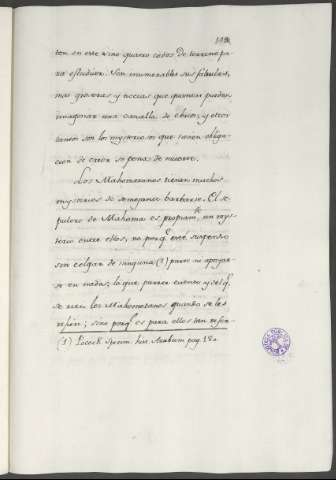 ten en este sino quatro codos de terreno pa-
ra estudiar. Son inumerables sus fabulas,
mas groseras y necias que quantas puedan
imaginar una canalla de ebrios; y otros
tantos son los mysterios que tienen obliga-
cion de creer so pena de muerte.
Los Mahometanos tienen muchos
mysterios de semejante barbarie. El se-
pulcro de Mahoma es propiamte. un mys-
terio entre ellos, no porq. esté suspenso
sin colgar de ninguna (1) parte no apoyar-
se en nada; lo que parece cuento y del q.
se rien los Mahometanos quando se les
refiere; sino porq. es para ellos tan
(1) Pocock Specim. hist. Arabum pag. 180